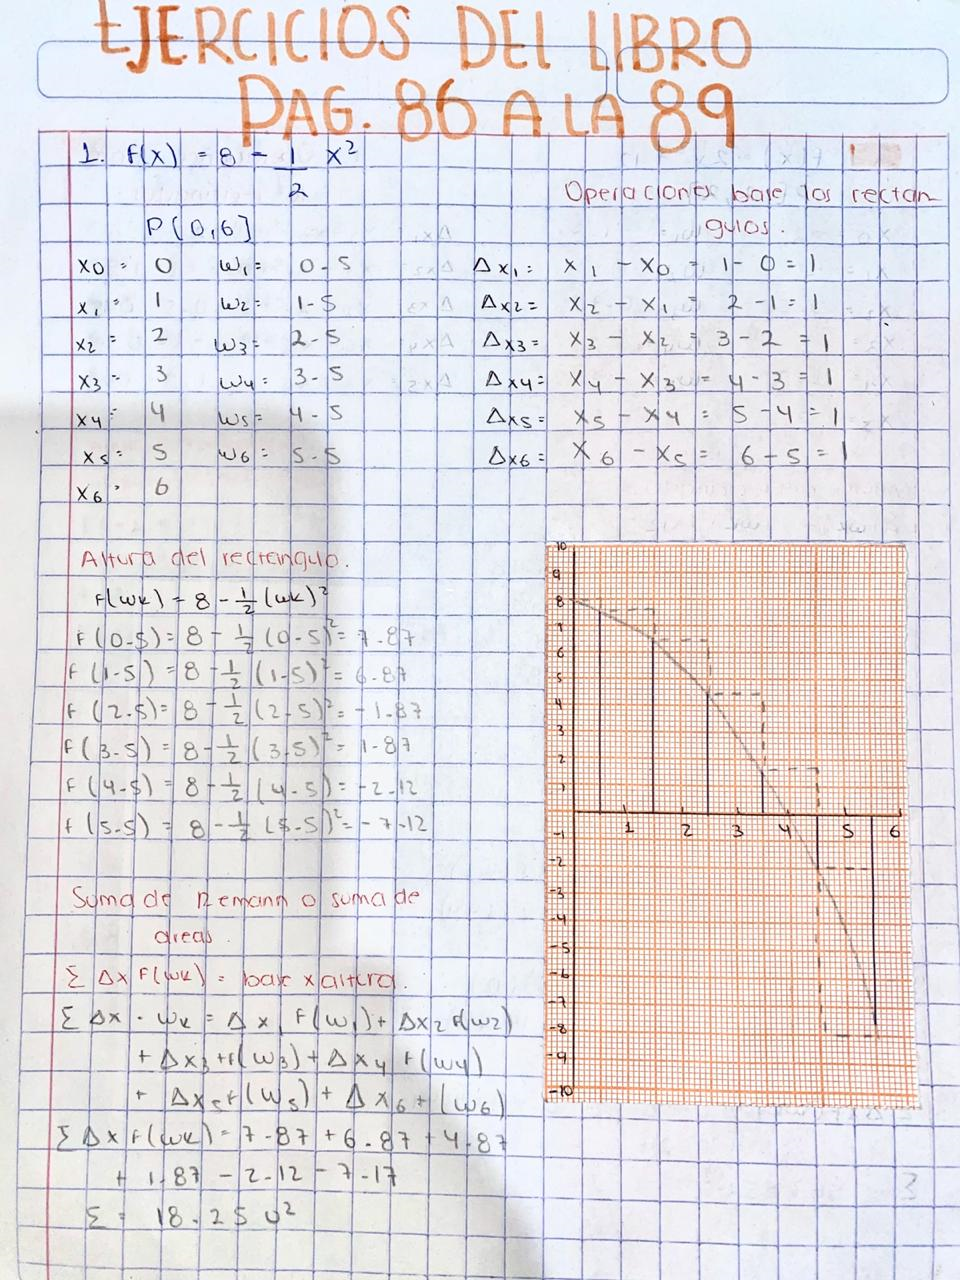 EJERCICIOS DEL LIBRO
PAG. 86 A LA 89
1. f(x) = 8 - 1/2 x²
P[0,6]
Operaciones base los rectan
gulos.
x0 = 0 w1 = 0.5 Δx1 = x1 - x0 = 1 - 0 = 1
x1 = 1 w2 = 1.5 Δx2 = x2 - x1 = 2 - 1 = 1
x2 = 2 w3 = 2.5 Δx3 = x3 - x2 = 3 - 2 = 1
x3 = 3 w4 = 3.5 Δx4 = x4 - x3 = 4 - 3 = 1
x4 = 4 w5 = 4.5 Δx5 = x5 - x4 = 5 - 4 = 1
x5 = 5 w6 = 5.5 Δx6 = x6 - x5 = 6 - 5 = 1
x6 = 6
Altura del rectangulo.
f(wk) = 8 - 1/2 (wk)²
f(0.5) = 8 - 1/2 (0.5)² = 7.87
f(1.5) = 8 - 1/2 (1.5)² = 6.87
f(2.5) = 8 - 1/2 (2.5)² = -1.87
f(3.5) = 8 - 1/2 (3.5)² = 1.87
f(4.5) = 8 - 1/2 (4.5)² = -2.12
f(5.5) = 8 - 1/2 (5.5)² = -7.12
Suma de Remann o suma de
areas.
Σ Δx f(wk) = base x altura.
Σ Δx · wk = Δx1 f(w1) + Δx2 f(w2)
+ Δx3 + f(w3) + Δx4 f(w4)
+ Δx5 f(w5) + Δx6 f(w6)
Σ Δx f(wk) = 7.87 + 6.87 + 4.87
+ 1.87 - 2.12 - 7.17
Σ = 18.25 u²
10
9
8
7
6
5
4
3
2
1
1 2 3 4 5 6
-1
-2
-3
-4
-5
-6
-7
-8
-9
-10